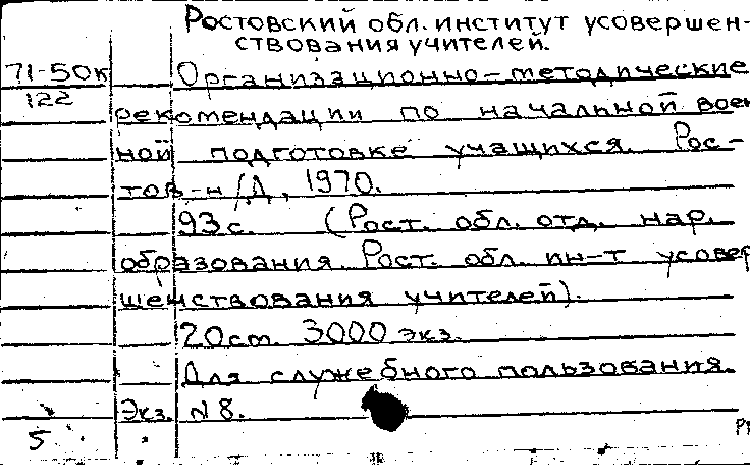 Ростовский обл. институт усовершен-
ствования учителей.
71-50к Организационно-методические
122
рекомендации по начальной воен
ной подготовке учащихся. Рос-
тов-н/Д, 1970.
93с. (Рост. обл. отд. нар.
образования. Рост. обл. ин-т усовер
шенствования учителей).
20см. 3000 экз.
Для служебного пользования.
Экз. №8.
5